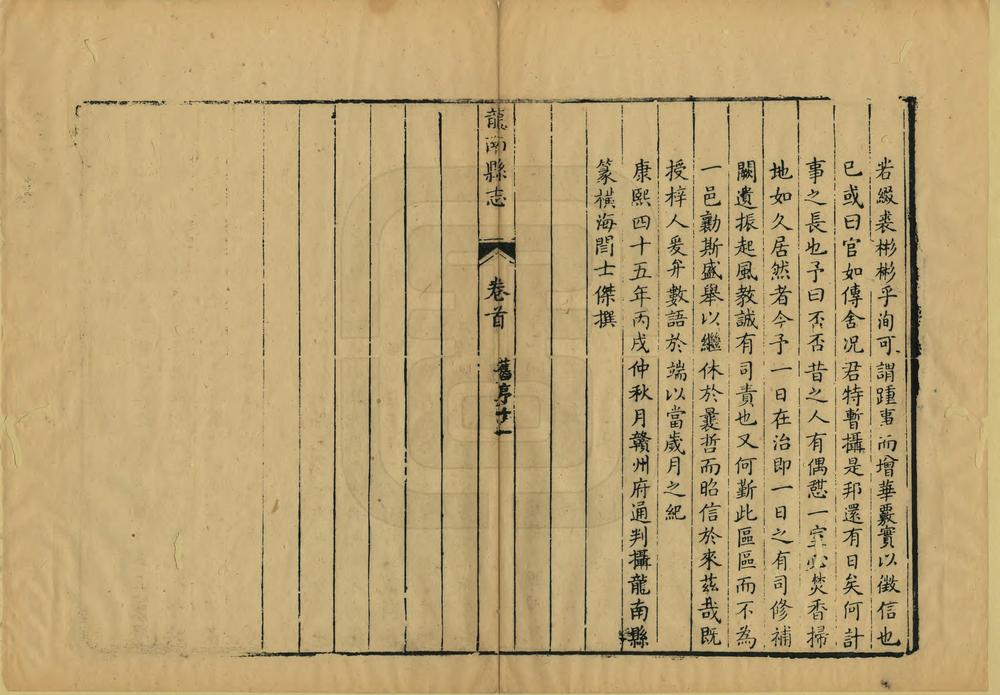 若綴裘彬彬乎洵可謂踵事而增華覈實以徵信也
已或曰官如傳舍况君特暫攝是邦還有日矣何計
事之長也予曰否否昔之人有偶憇一室必焚香掃
地如久居然者今予一日在治即一日之有司修補
闕遺振起風教誠有司責也又何靳此區區而不為
一邑勷斯盛舉以繼休於曩哲而昭信於來茲哉既
授梓人爰弁數語於端以當歲月之紀
康熙四十五年丙戌仲秋月贛州府通判攝龍南縣
篆橫海閆士傑撰
龍南縣志
卷首
舊序
十一